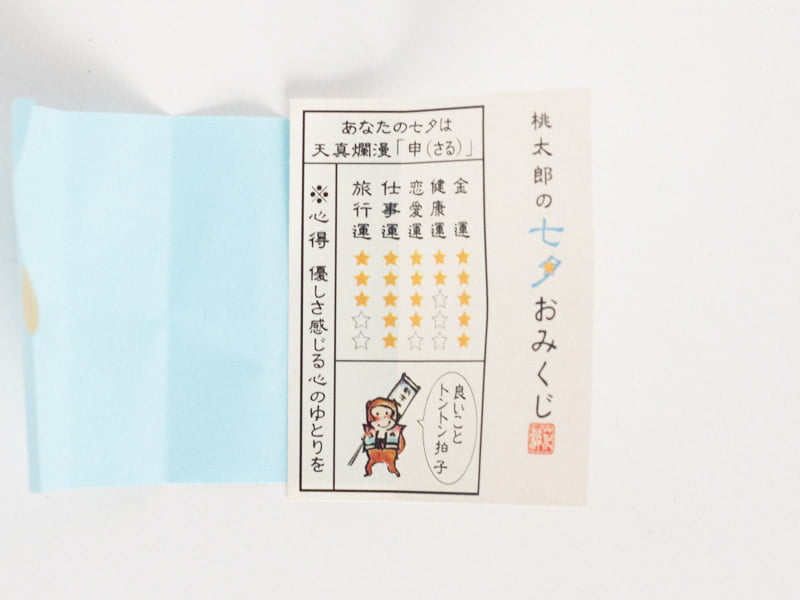 桃太郎の七夕おみくじ
あなたの七夕は
天真爛漫「申（さる）」
金運 ★★★★★
健康運 ★★☆☆☆
恋愛運 ★★★★☆
仕事運 ★★★★★
旅行運 ★★★☆☆
良いこと
トントン拍子
※心得 優しさ感じる心のゆとりを